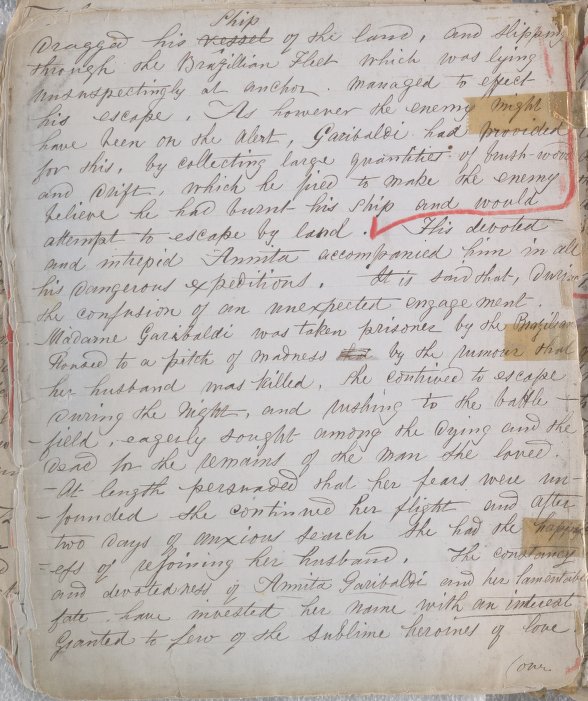 Ship
dragged his vessel of the land, and slipping
through the Brazillian Fleet which was lying
unsuspectingly at anchor. managed to effect
his escape. As however the enemy might
have been on the alert, Garibaldi had provided
for this, by collecting large quantities of brush-wood
and drift, which he fired to make the enemy
believe he had burnt his ship and would
attempt to escape by land. This devoted
and intrepid Annita accompanied him in all
his dangerous expeditions. It is said that, during
the confusion of an unexpected engagement.
Madame Garibaldi was taken prisoner by the Brazilians
Roused to a pitch of madness by the rumour that
her husband was killed, she contrived to escape
during the night, and rushing to the battle-
-field, eagerly sought among the dying and the
dead for the remains of the man she loved.
-At length persuaded that her fears were un-
-founded she continued her flight and after
two days of anxious search she had the happin
-ess of rejoining her husband. The constancy
and devotedness of Annita Garibaldi and her lamentable
fate, have invested her name with an interest
Granted to few of the sublime heroines of love
(over